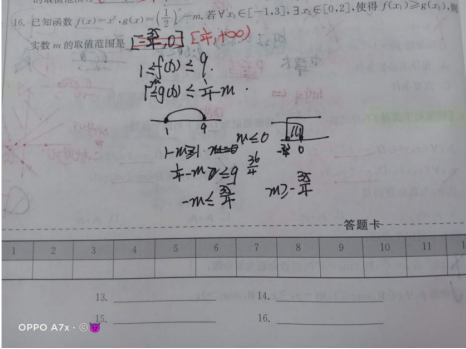 16. 已知函数 f(x)=x²,g(x)=(1/2)ˣ-m,若∀x₁∈[-1,3],∃x₂∈[0,2],使得 f(x₁)≥g(x₂),则
实数 m 的取值范围是 [-35/4,0] [1/4,+∞)
1≤f(x)≤9.
1-m≤g(x)≤1/4-m.
1 9
m≤0
-35/4 0
1/4-m≤9 36/4
-m≤35/4 m≥-35/4
答题卡
1 2 3 4 5 6 7 8 9 10 11
13. 14.
15. 16.
OPPO A7x